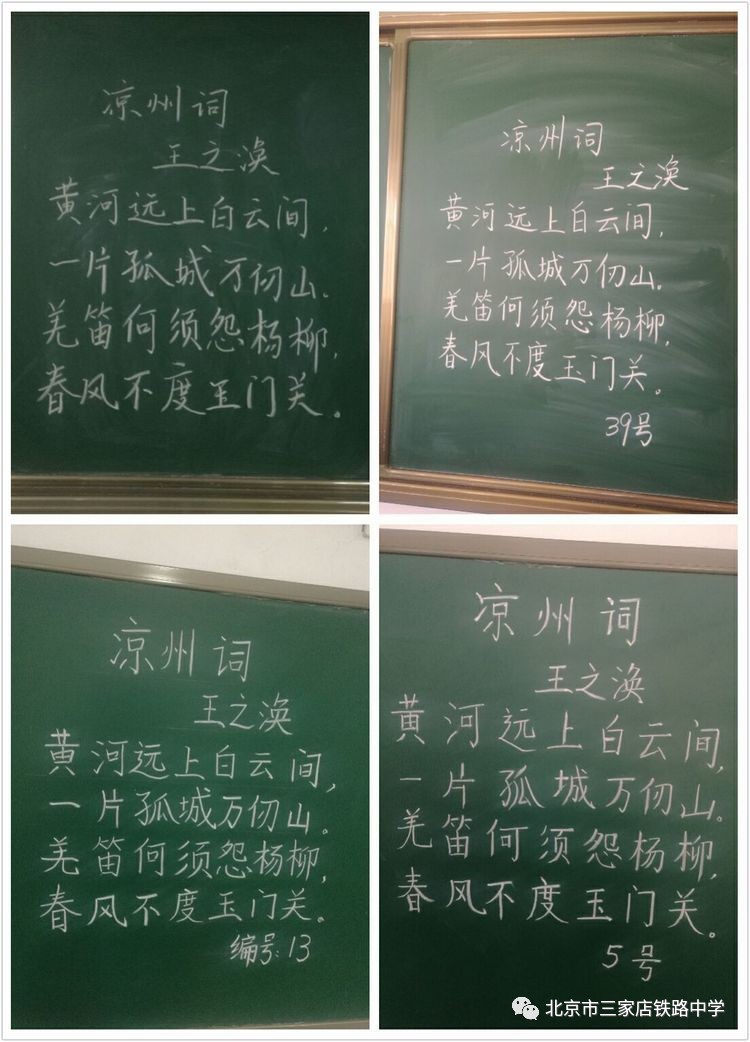 凉州词
王之涣
黄河远上白云间，
一片孤城万仞山。
羌笛何须怨杨柳，
春风不度玉门关。
凉州词
王之涣
黄河远上白云间，
一片孤城万仞山。
羌笛何须怨杨柳，
春风不度玉门关。
39号
凉州词
王之涣
黄河远上白云间，
一片孤城万仞山。
羌笛何须怨杨柳，
春风不度玉门关。
编号:13
凉州词
王之涣
黄河远上白云间，
一片孤城万仞山。
羌笛何须怨杨柳，
春风不度玉门关。
5号
北京市三家店铁路中学